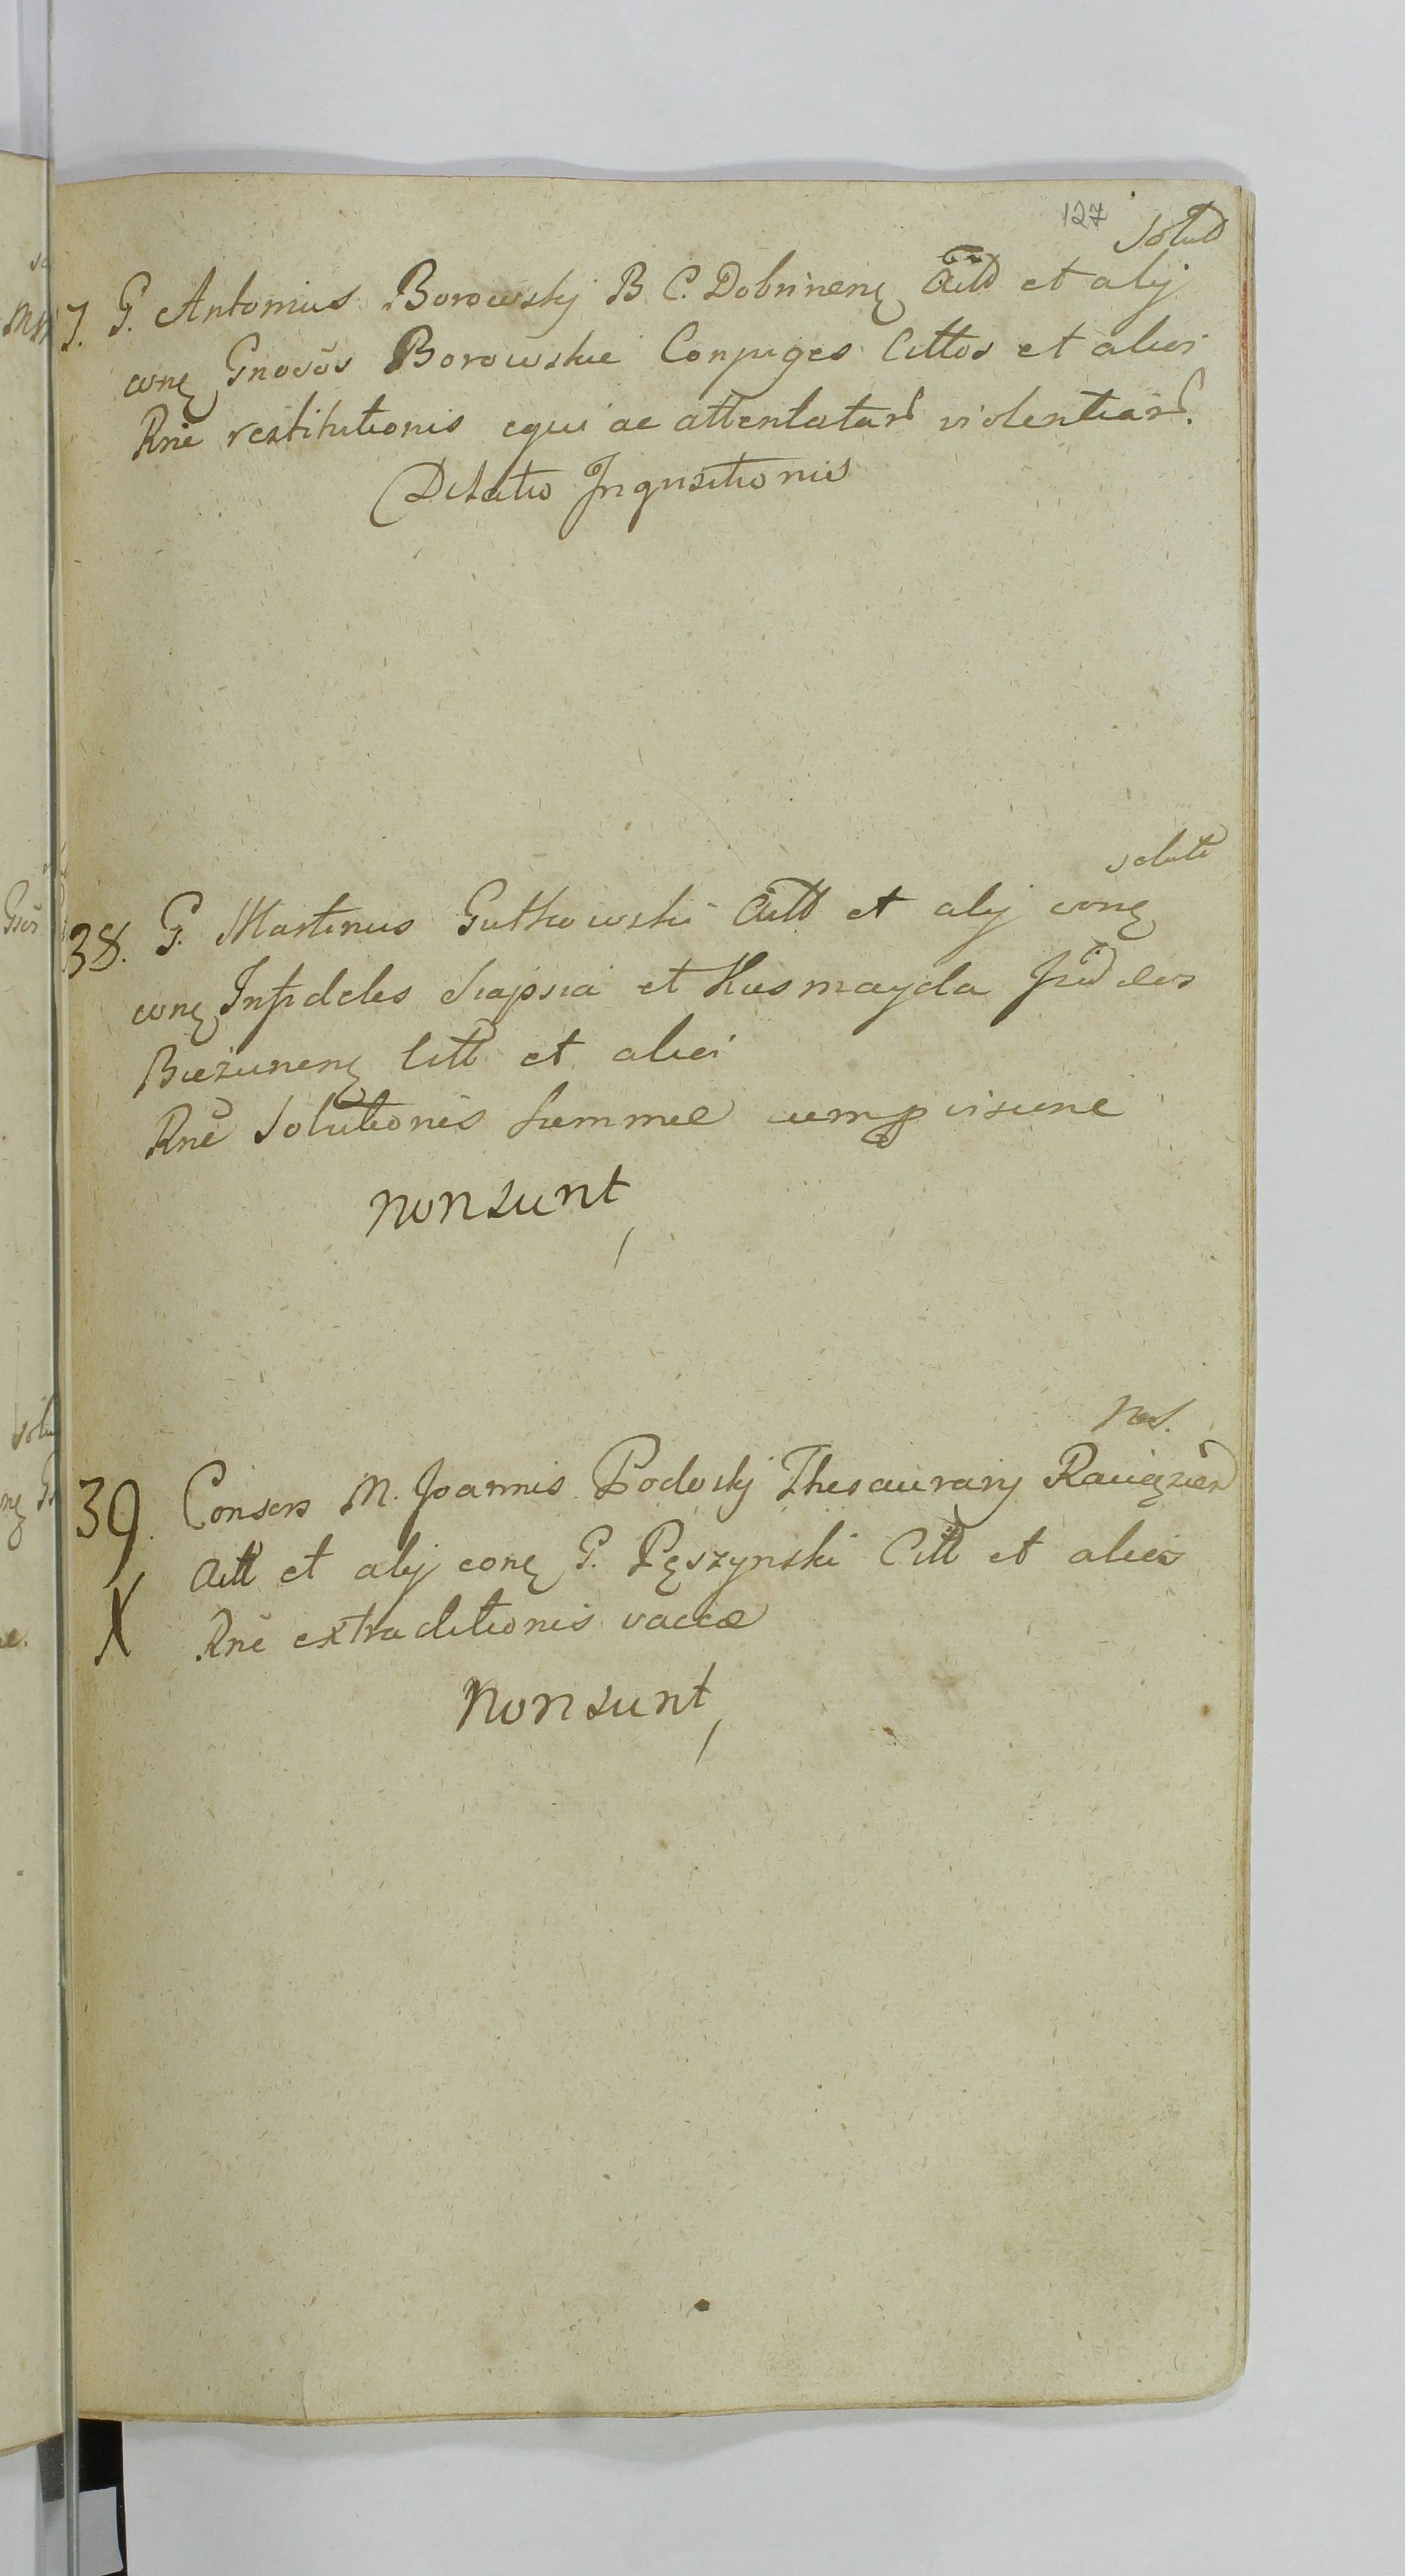 127
solut
7. G. Antonius Borowskj B. C. Dobrinenę Actt et alij
conę Gnosos Borowskie Conjuges Cittos et alios
Rne restitutionis equi ac attentatar violentiar.
Dilatio Inquisitionis
solut
38. G. Martinus Gutkowski Actt et alij conę
conę Infideles et Judeos
Bieżunenę Citt et alios
Rne Solutionis summae
non sunt
39. Consors M. Joannis Podoskj Thesaurarij
Actt et alij conę G. Pęszynski Citt et alios
X Rne extraditionis vaccae
non sunt